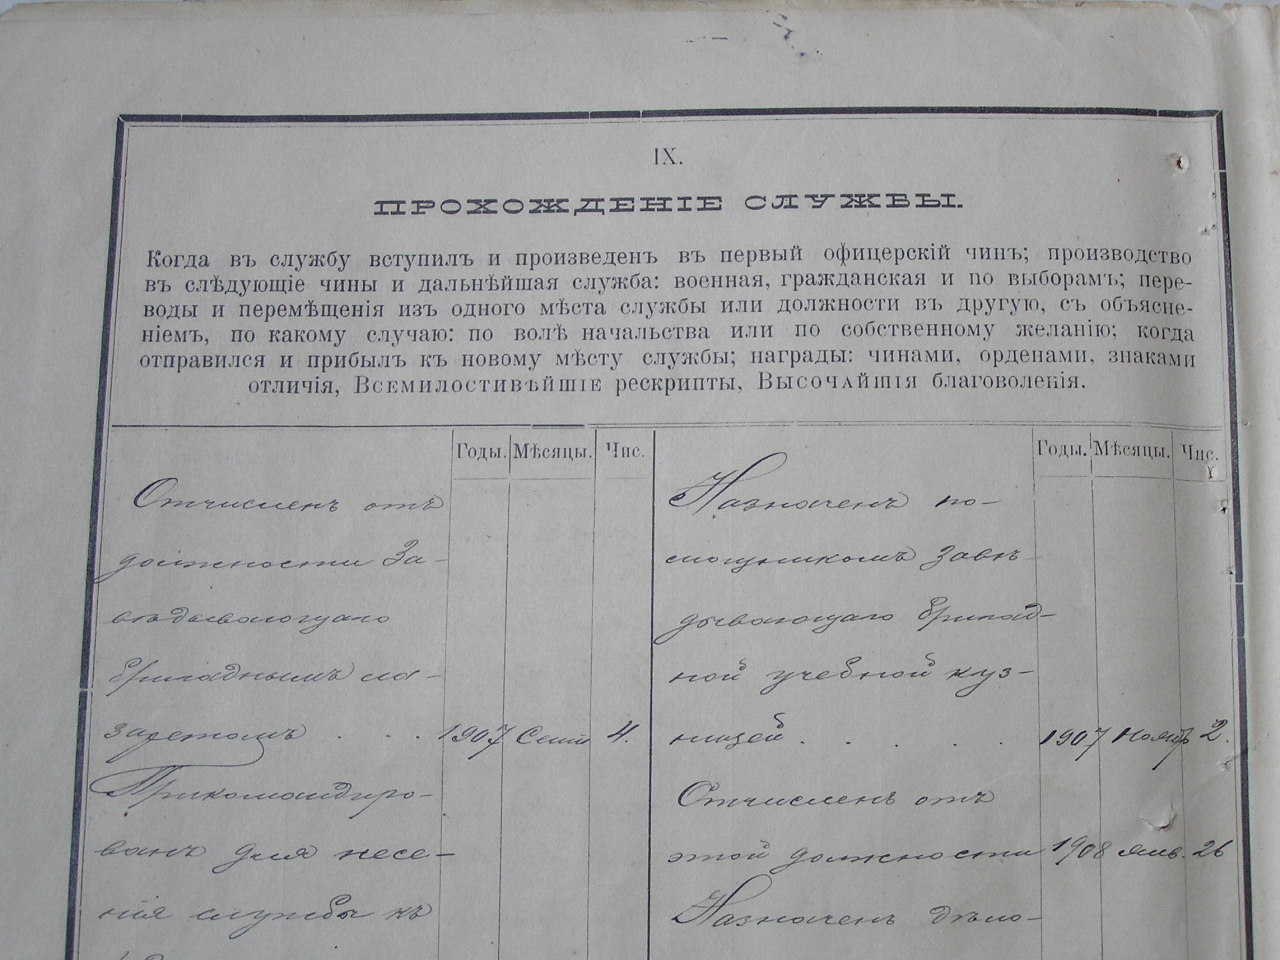 IX.
ПРОХОЖДЕНІЕ СЛУЖБЫ.
Когда въ службу вступилъ и произведенъ въ первый офицерскій чинъ; производство
въ слѣдующіе чины и дальнѣйшая служба: военная, гражданская и по выборамъ; пере-
воды и перемѣщенія изъ одного мѣста службы или должности въ другую, съ объясне-
ніемъ, по какому случаю: по волѣ начальства или по собственному желанію; когда
отправился и прибылъ къ новому мѣсту службы; награды: чинами, орденами, знаками
отличія, Всемилостивѣйшіе рескрипты, Высочайшія благоволенія.
Годы. Мѣсяцы. Чис.
Отчисленъ отъ
должности За-
вѣдывающаго
бригаднымъ ла-
заретомъ . . . 1907 Сент 4.
Прикомандиро-
ванъ для несе-
нія службы къ
Годы. Мѣсяцы. Чис.
Назначенъ по-
мощникомъ Завѣ-
дывающаго бригад-
ной учебной куз-
ницей . . . . . 1907 Ноябр 2.
Отчисленъ отъ
этой должности 1908 Янв. 26
Назначенъ дѣло-